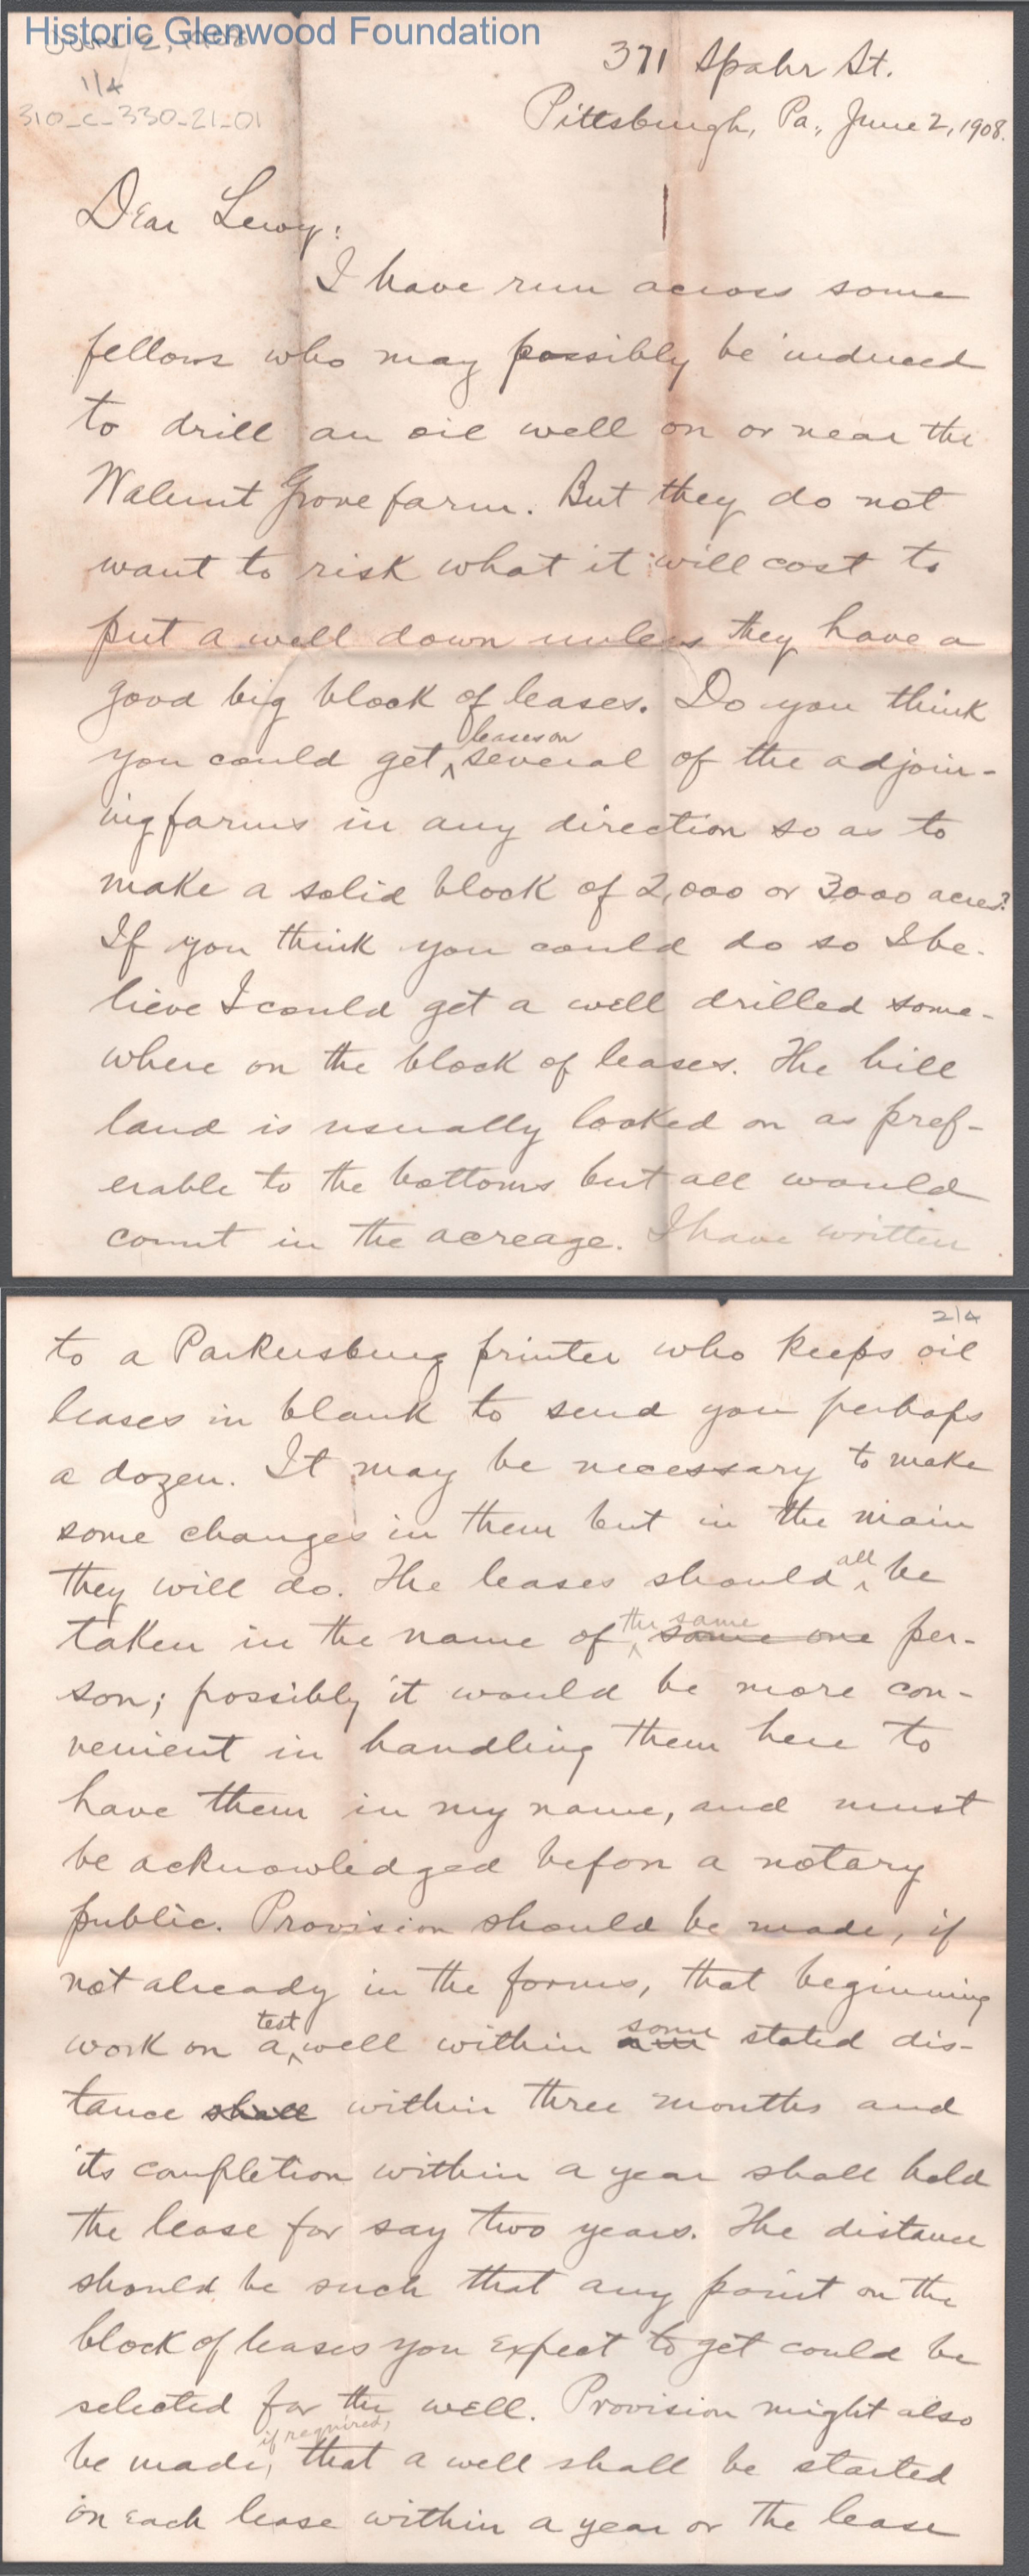 Historic Glenwood Foundation
June 2, 1908
1/4
310_c_330_21_01
371 Spahr St.
Pittsburgh, Pa., June 2, 1908.
Dear Lewy:
I have run across some
fellows who may possibly be induced
to drill an oil well on or near the
Walnut Grove farm. But they do not
want to risk what it will cost to
put a well down unless they have a
good big block of leases. Do you think
leases on
you could get ^ several of the adjoin-
ing farms in any direction so as to
make a solid block of 2,000 or 3000 acres?
If you think you could do so I be-
lieve I could get a well drilled some-
where on the block of leases. The hill
land is usually looked on as pref-
erable to the bottoms but all would
count in the acreage. I have written
2/4
to a Parkersburg printer who keeps oil
leases in blank to send you perhaps
a dozen. It may be necessary to make
some changes in them but in the main
they will do. The leases should ^ all be
the same
taken in the name of ^ some one per-
son; possibly it would be more con-
venient in handling them here to
have them in my name, and must
be acknowledged before a notary
public. Provision should be made, if
not already in the forms, that beginning
test some
work on a ^ well within stated dis-
tance shall within three months and
its completion within a year shall hold
the lease for say two years. The distance
should be such that any point on the
block of leases you expect to get could be
selected for the well. Provision might also
if required,
be made, that a well shall be started
on each lease within a year or the lease